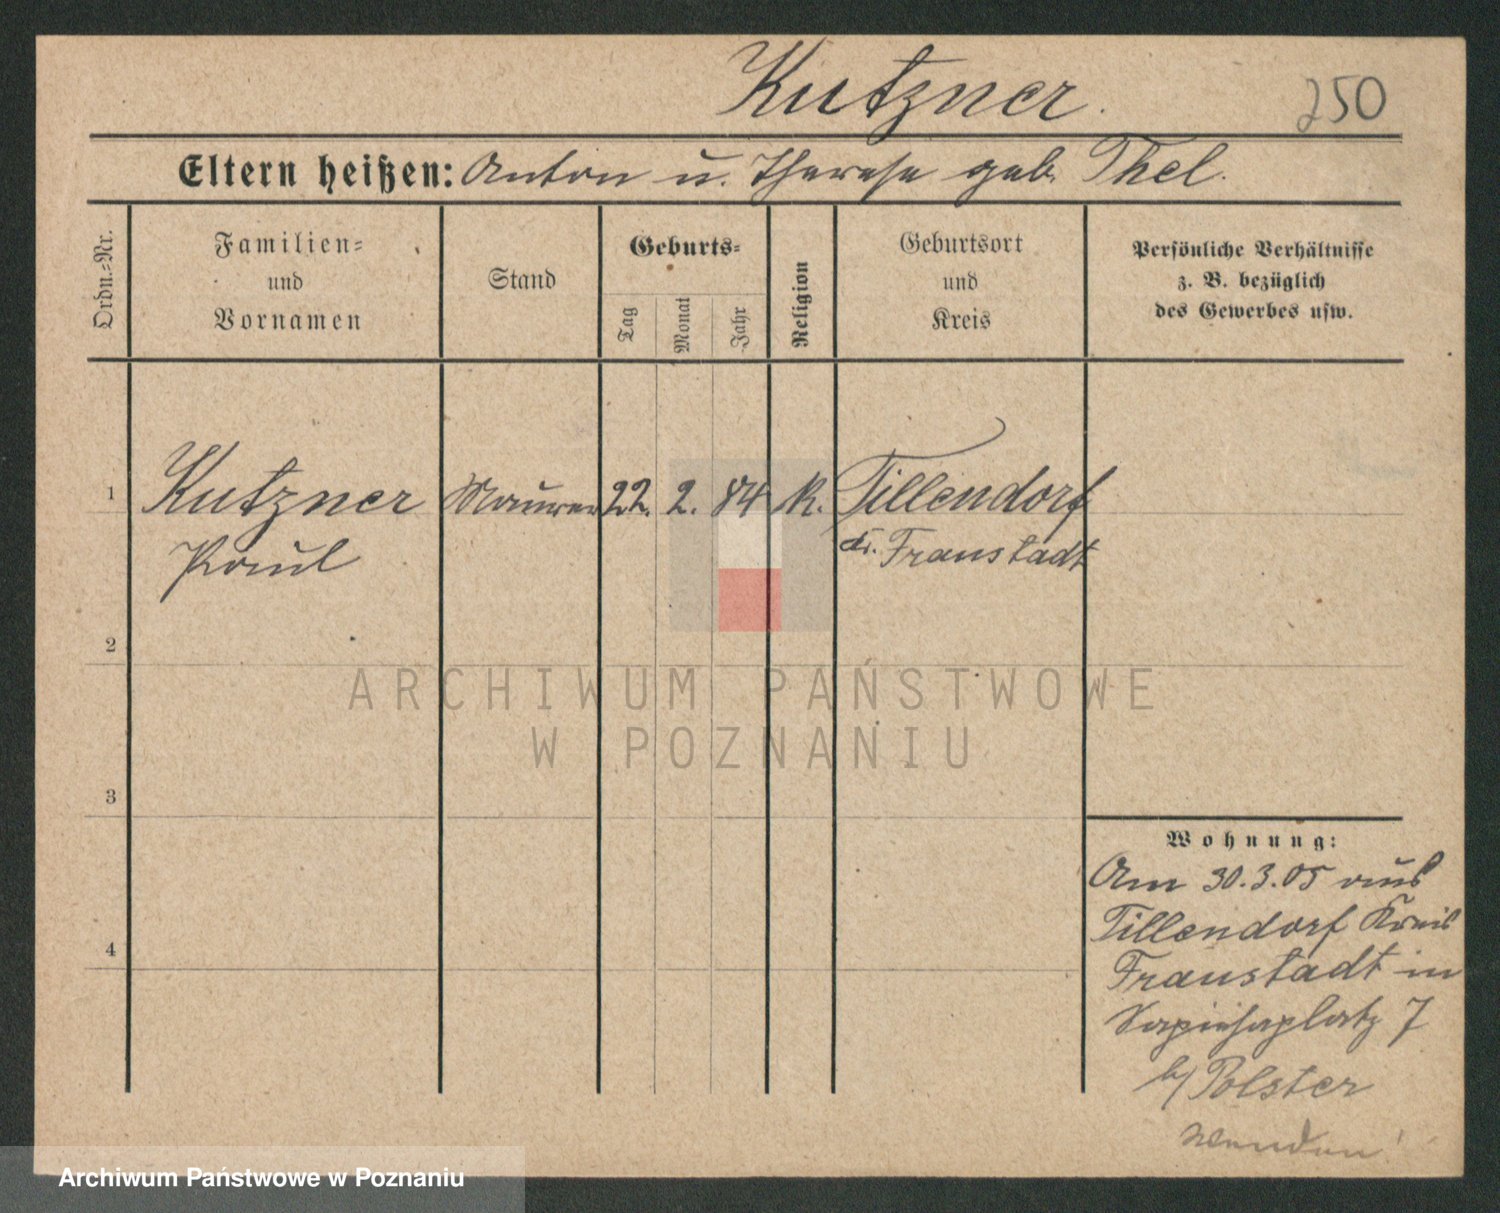 Kutzner.
250
Eltern heißen: Anton u. Therese geb. Thel.
Ordn.=Nr.
Familien=
und
Vornamen
Stand
Geburts=
Tag
Monat
Jahr
Religion
Geburtsort
und
Kreis
Persönliche Verhältnisse
z. B. bezüglich
des Gewerbes usw.
1 Kutzner Maurer 22. 2. 84 k. Tillendorf
Paul Kr. Fraustadt
2
3
4
Wohnung:
Am 30.3.05 aus
Tillendorf Kreis
Fraustadt in
Sapiehaplatz 7
b/ Polster
wenden!
ARCHIWUM PAŃSTWOWE
W POZNANIU
Archiwum Państwowe w Poznaniu